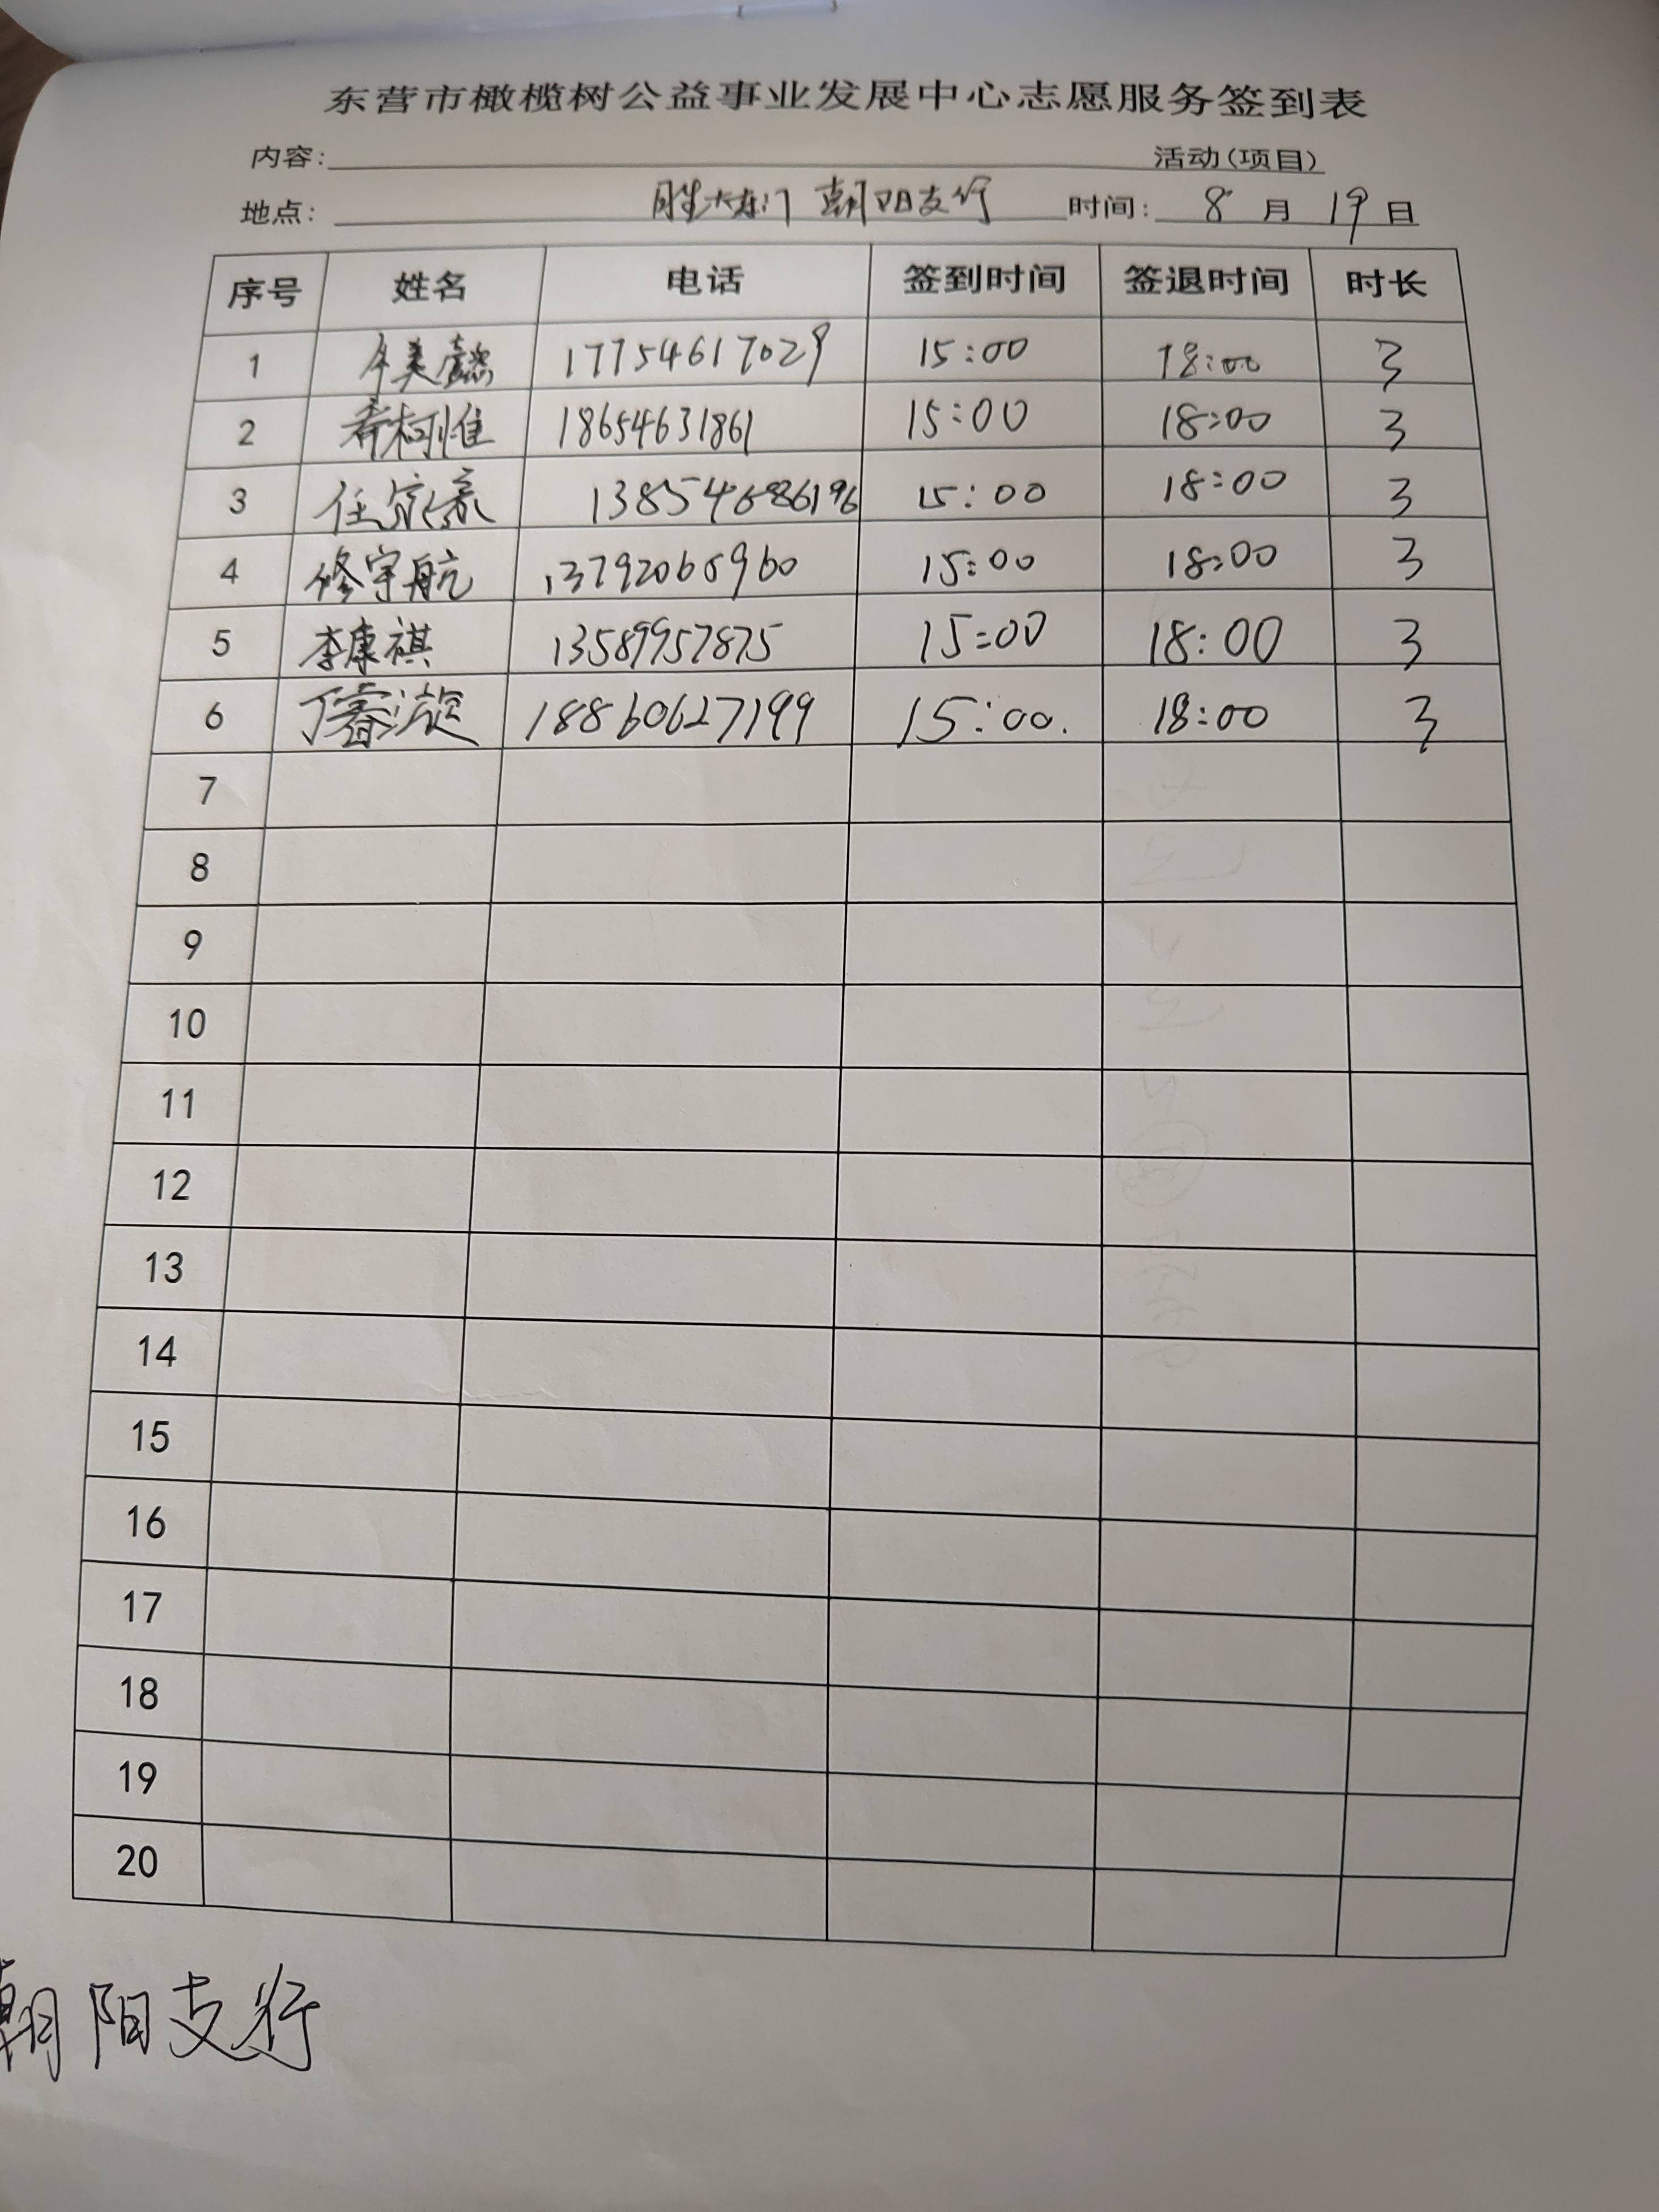 东营市橄榄树公益事业发展中心志愿服务签到表
内容: 活动(项目)
地点: 胜大东门 朝阳支行 时间: 8 月 19 日
序号 姓名 电话 签到时间 签退时间 时长
1 美懿 17754617029 15:00 18:00 3
2 柯惟 18654631861 15:00 18:00 3
3 任家豪 13854686196 15:00 18:00 3
4 修宇航 13792065960 15:00 18:00 3
5 李康祺 13589957875 15:00 18:00 3
6 丁睿漩 18860627199 15:00. 18:00 3
7
8
9
10
11
12
13
14
15
16
17
18
19
20
朝阳支行